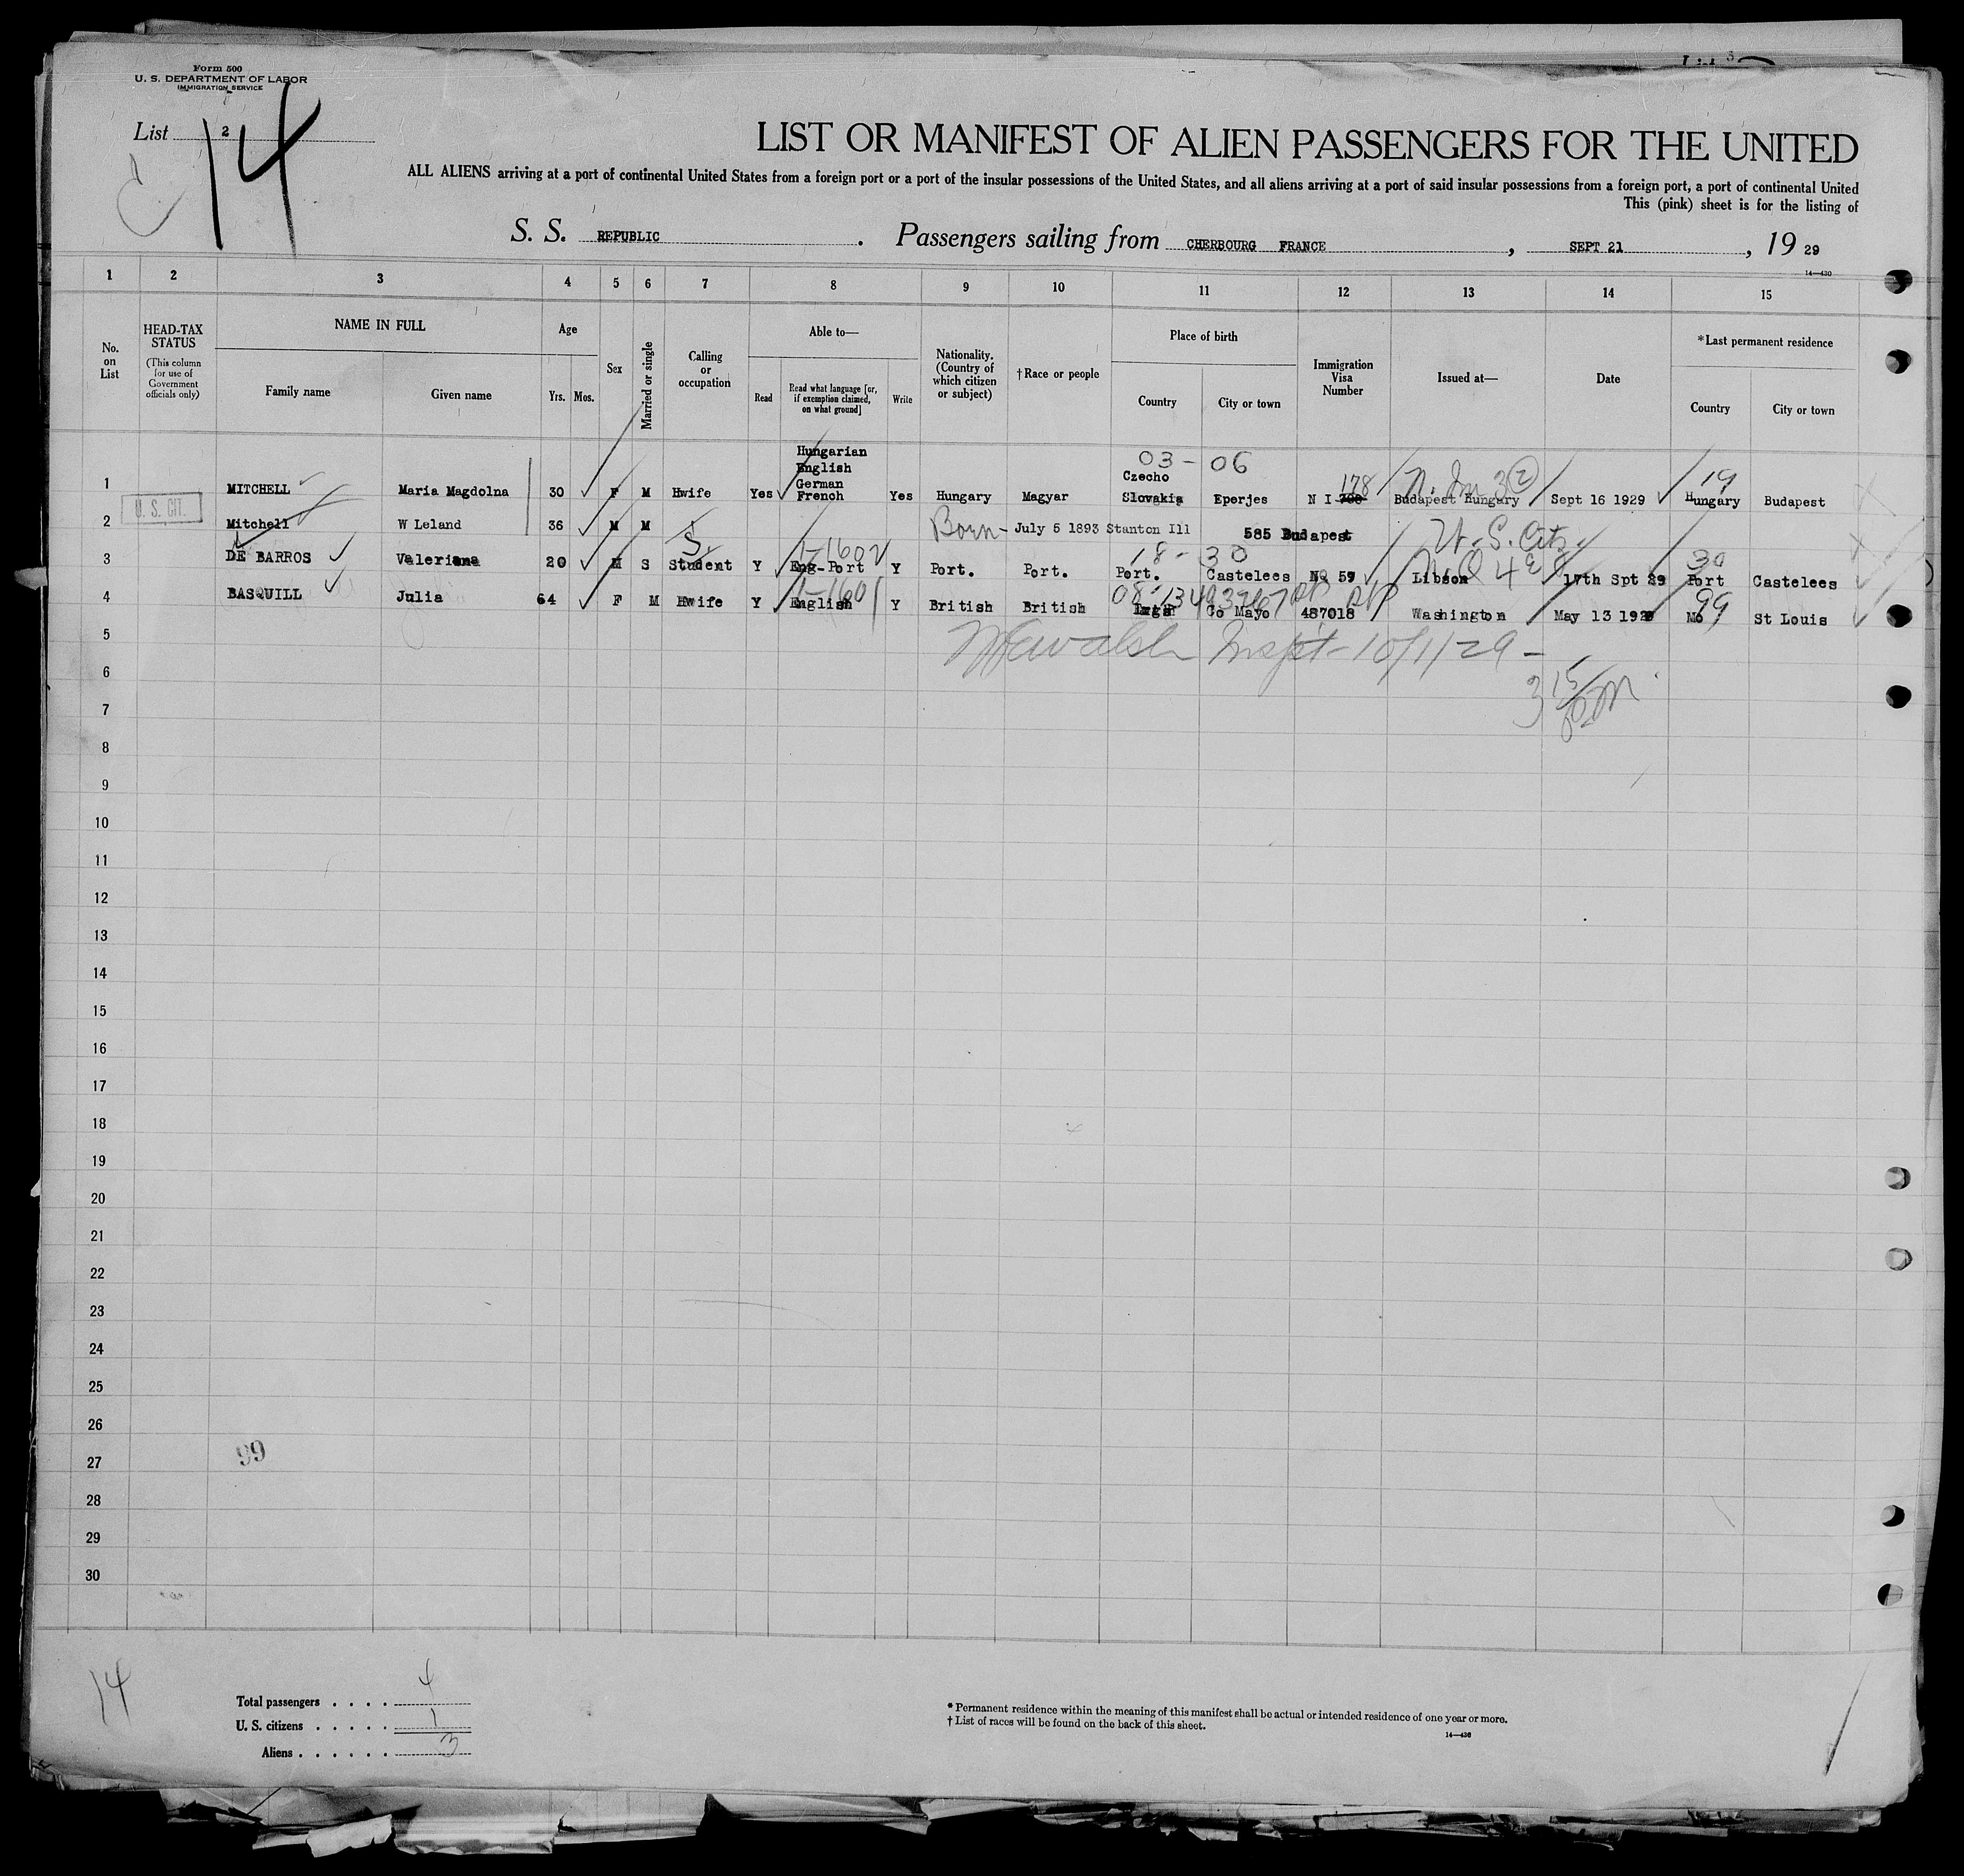 Form 500
U. S. DEPARTMENT OF LABOR
IMMIGRATION SERVICE
List 2
14
LIST OR MANIFEST OF ALIEN PASSENGERS FOR THE UNITED
ALL ALIENS arriving at a port of continental United States from a foreign port or a port of the insular possessions of the United States, and all aliens arriving at a port of said insular possessions from a foreign port, a port of continental United
This (pink) sheet is for the listing of
S. S. REPUBLIC. Passengers sailing from CHERBOURG FRANCE, SEPT 21, 19 29
14—430
1 2 3 4 5 6 7 8 9 10 11 12 13 14 15
No. on List
HEAD-TAX STATUS
(This column for use of Government officials only)
NAME IN FULL
Family name Given name
Age
Yrs. Mos.
Sex
Married or single
Calling or occupation
Able to—
Read
Read what language [or, if exemption claimed, on what ground]
Write
Nationality. (Country of which citizen or subject)
†Race or people
Place of birth
Country City or town
Immigration Visa Number
Issued at—
Date
*Last permanent residence
Country City or town
03-06
Hungarian
English
German Czecho 178 19
1 MITCHELL Maria Magdolna 30 F M Hwife Yes French Yes Hungary Magyar Slovakia Eperjes N I 708 Budapest Hungary Sept 16 1929 Hungary Budapest
U. S. CIT.
2 Mitchell W Leland 36 M M Born- July 5 1893 Stanton Ill 585 Budapest U.S. Citz.
S 1-1602 18- 30 30
3 DE BARROS Valeriana 20 M S Student Y Eng-Port Y Port. Port. Port. Castelees NQ 59 Libson 17th Spt 29 Port Castelees
1-1601 08-13 99
4 BASQUILL Julia 64 F M Hwife Y English Y British British Co Mayo 487018 Washington May 13 1929 Mo St Louis
5 Walsh Inspt- 10/1/29-
6 3 15
7 PM
8
9
10
11
12
13
14
15
16
17
18
19
20
21
22
23
24
25
26
27 99
28
29
30
14
Total passengers . . . . 4
U. S. citizens . . . . . 1
Aliens . . . . . . 3
* Permanent residence within the meaning of this manifest shall be actual or intended residence of one year or more.
† List of races will be found on the back of this sheet.
14—430